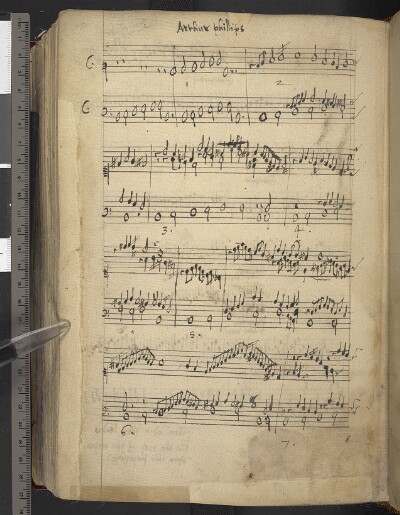 Arthur phillips
C
2
C
3. 4.
5.
6. 7.